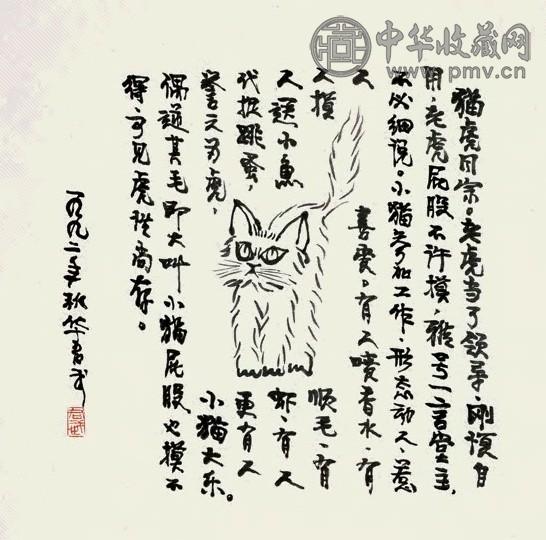 中华收藏网
www.pmv.cn
貓虎同宗。老虎当了领导,刚愎自
用,老虎屁股不许摸,雅号一言堂主,
不必细说。小猫参加工作,形态动人,惹
人喜爱。有人喷香水,有
人摸顺毛,有
人送小魚虾,有人
代捉跳蚤,更有人
誉之为虎,小猫大乐。
偶逆其毛即大叫小猫屁股也摸不
得,可见虎性尚存。
一九九二年秋华君武